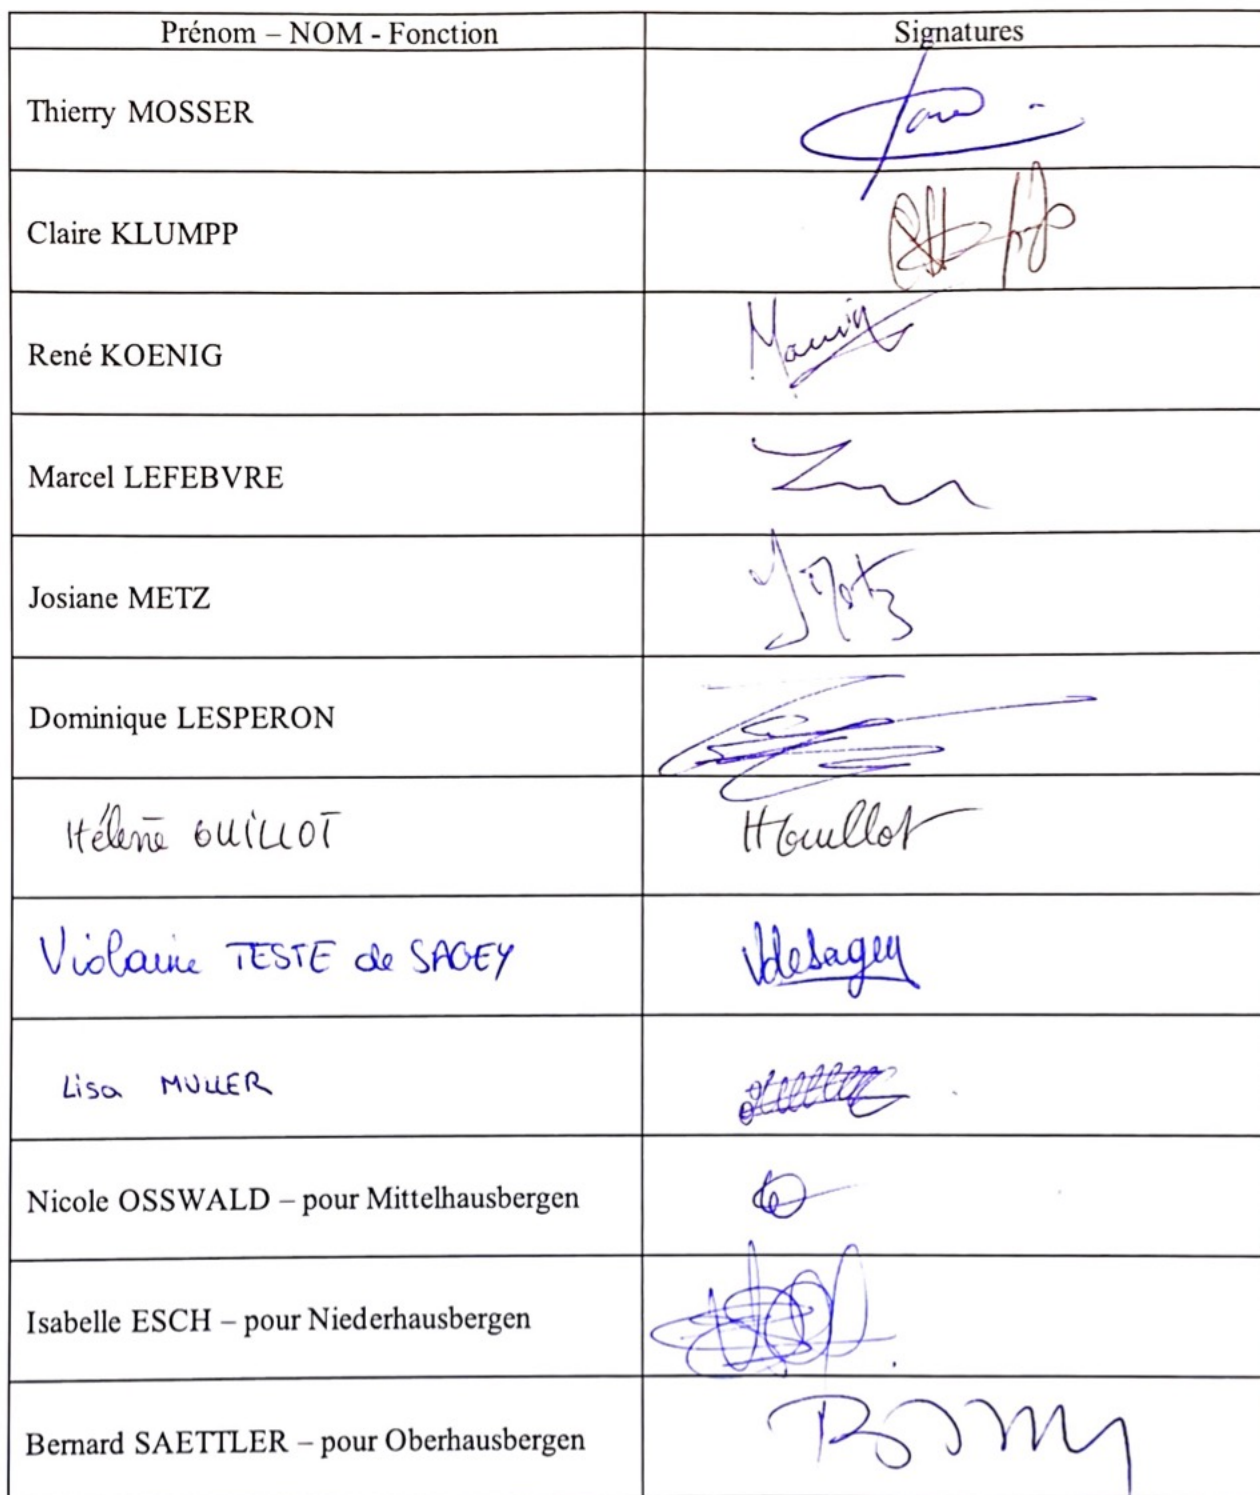 Prénom – NOM - Fonction Signatures
Thierry MOSSER
Claire KLUMPP
René KOENIG
Marcel LEFEBVRE
Josiane METZ JMetz
Dominique LESPERON
Hélène GUILLOT HGuillot
Violaine TESTE de SAGEY VdeSagey
Lisa MULLER
Nicole OSSWALD – pour Mittelhausbergen
Isabelle ESCH – pour Niederhausbergen
Bernard SAETTLER – pour Oberhausbergen